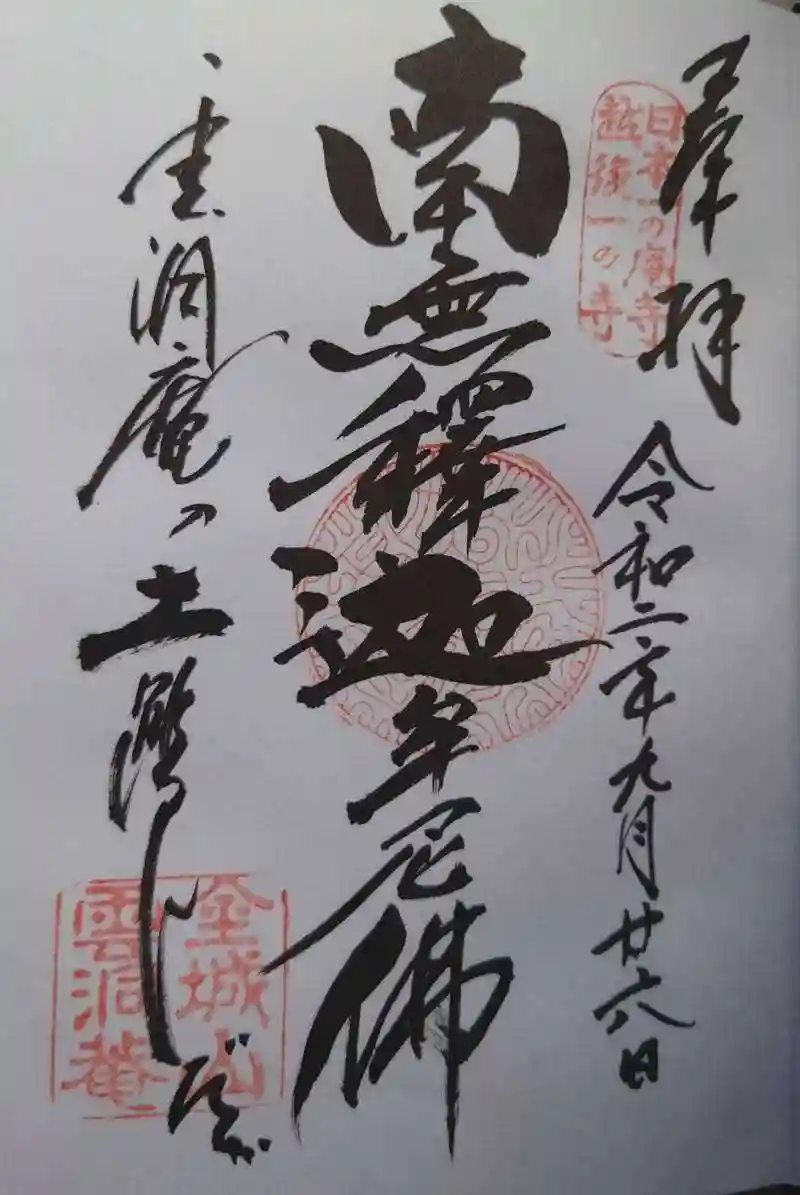 奉拝
令和二年九月廿六日
日本一の庵寺
越後一の寺
南無釋迦牟尼佛
雲洞庵の土踏んだ
金城山
雲洞菴